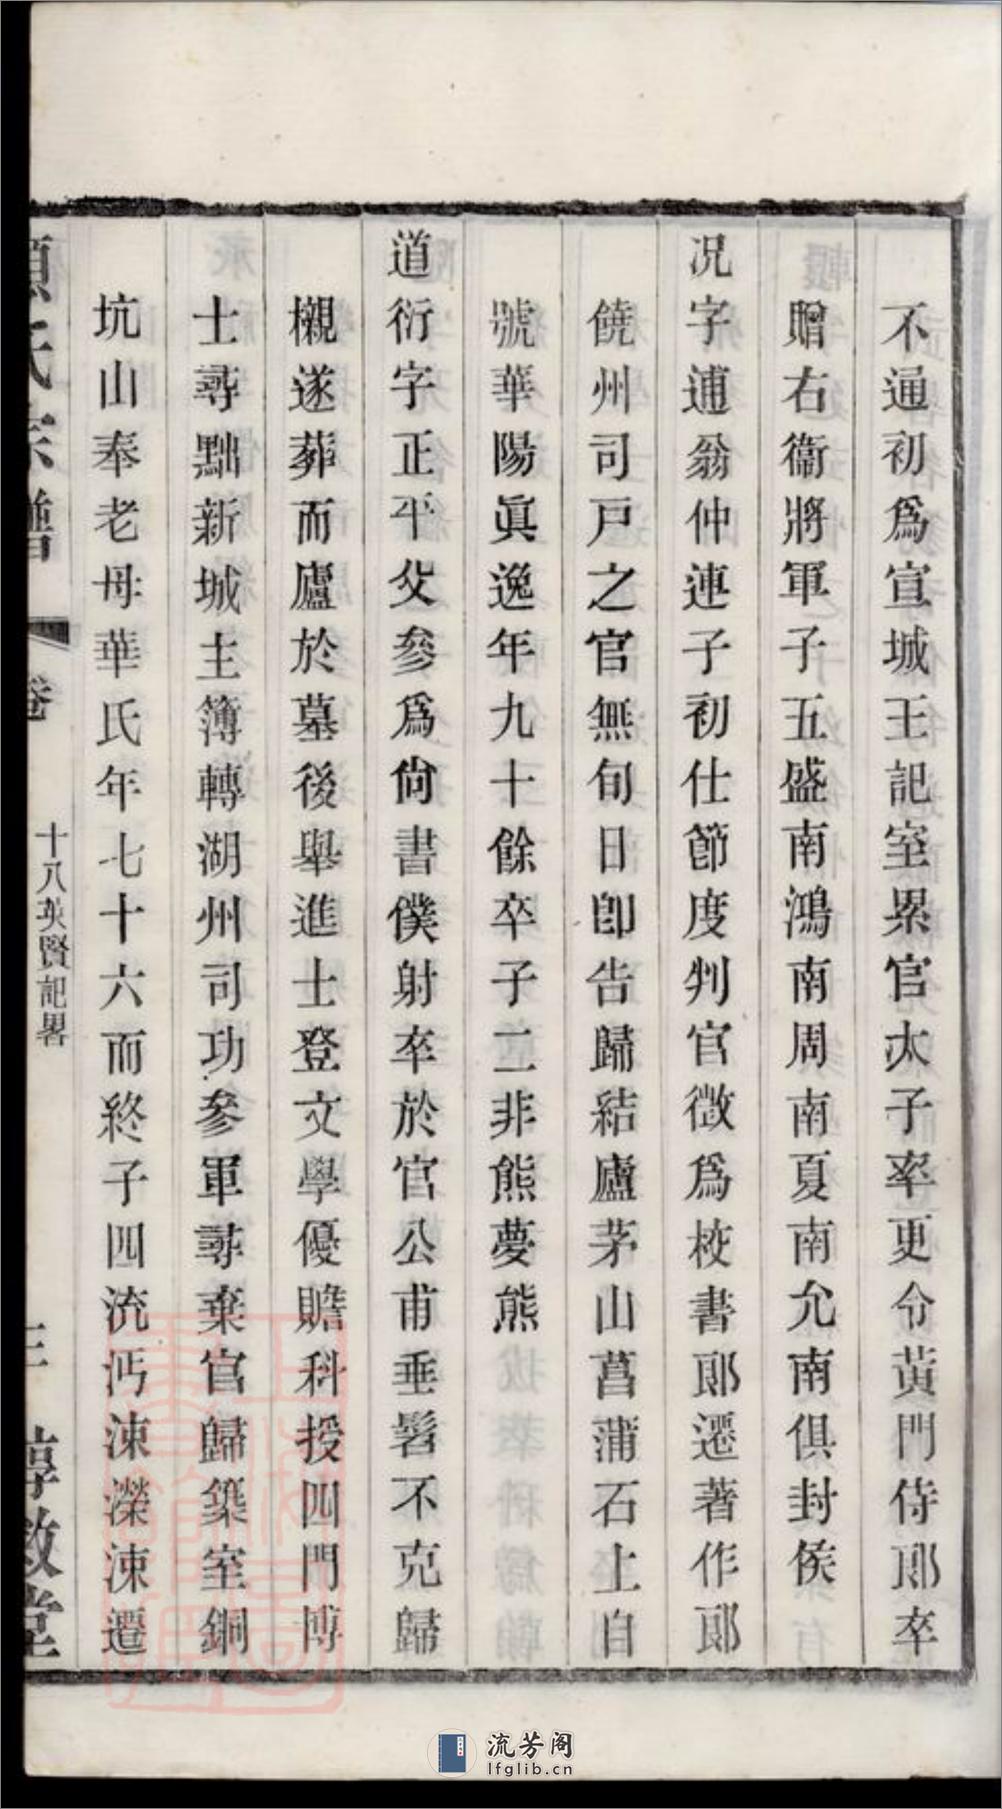 不通初爲宣城王記室累官太子率更令黃門侍郎卒
贈右衞將軍子五盛南鴻南周南夏南允南俱封侯
况字逋翁仲連子初仕節度判官徵爲校書郎遷著作郎
饒州司戸之官無旬日卽告歸結廬茅山菖蒲石上自
號華陽眞逸年九十餘卒子二非熊夢熊
道衍字正平父參爲尙書僕射卒於官公甫垂髫不克歸
櫬遂葬而廬於墓後舉進士登文學優贍科授四門博
士尋黜新城主簿轉湖州司功參軍尋棄官歸築室銅
坑山奉老母華氏年七十六而終子四流沔涑濼涑遷
氏宗譜 卷 十八英賢記畧 三 敦堂
流芳阁
lfglib.cn